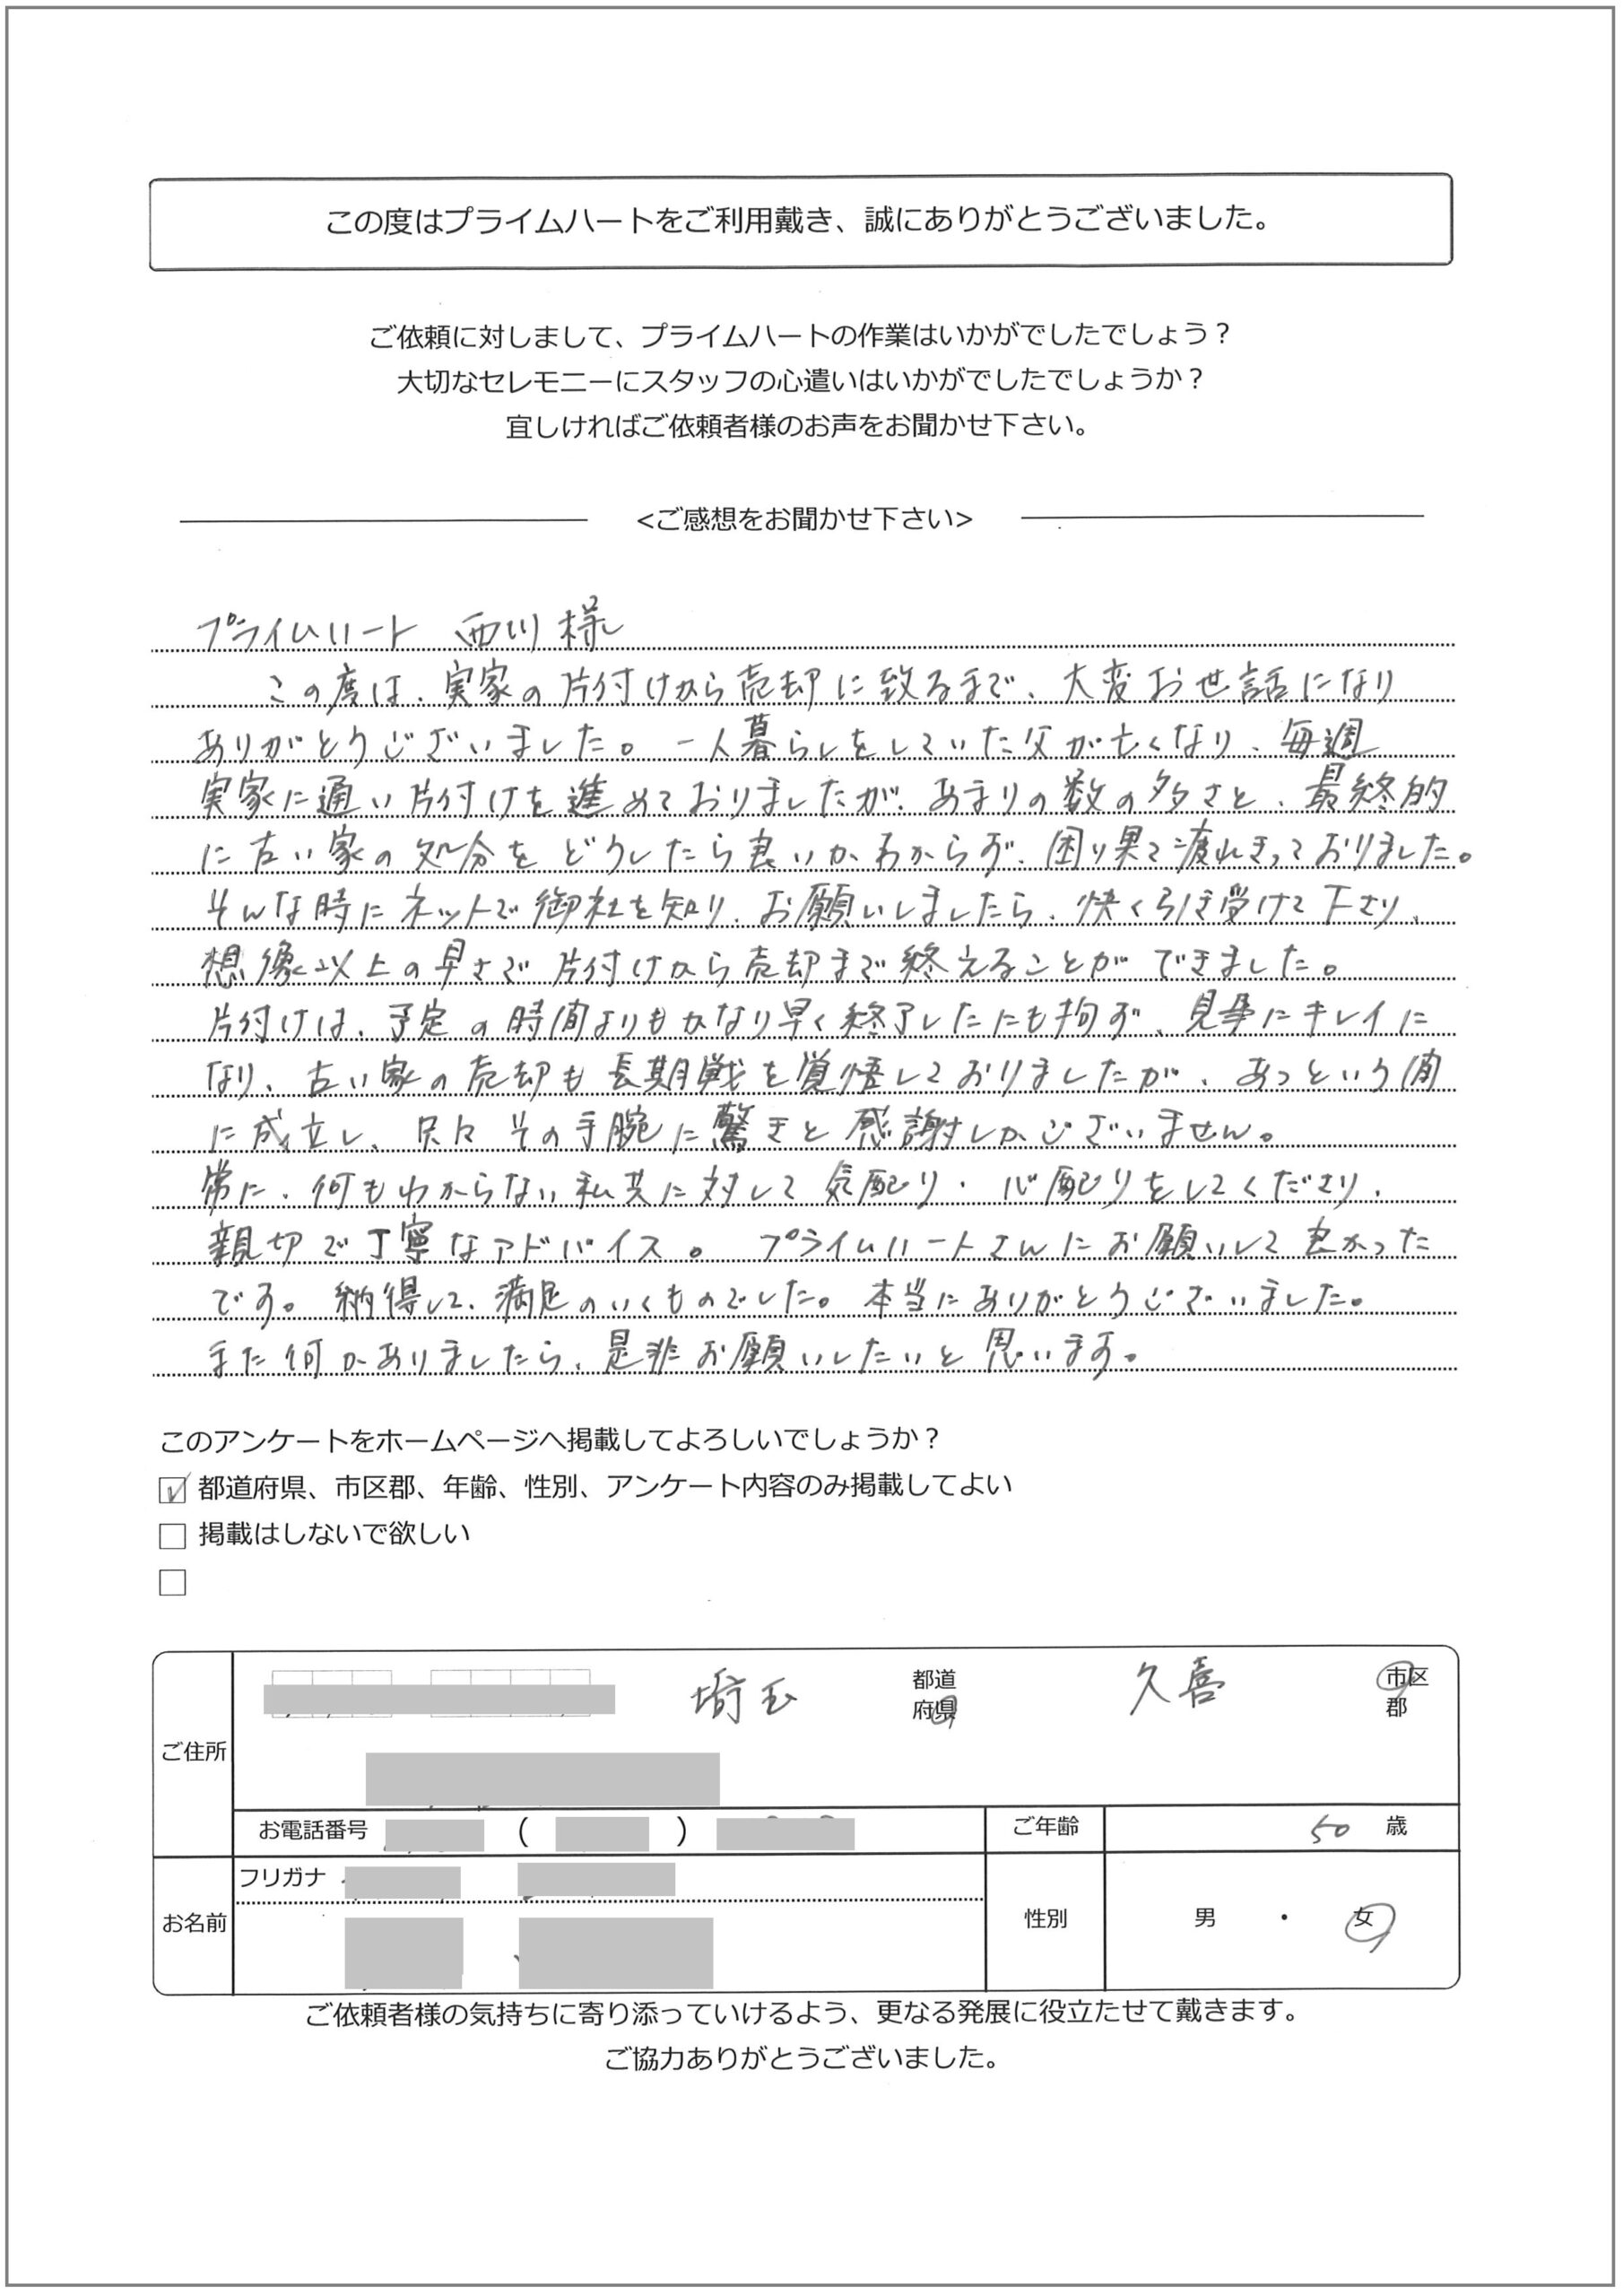 この度はプライムハートをご利用戴き、誠にありがとうございました。
ご依頼に対しまして、プライムハートの作業はいかがでしたでしょう？
大切なセレモニーにスタッフの心遣いはいかがでしたでしょうか？
宜しければご依頼者様のお声をお聞かせ下さい。
<ご感想をお聞かせ下さい>
プライムハート 西川様
この度は、実家の片付けから売却に致るまで、大変お世話になり
ありがとうございました。一人暮らしをしていた父が亡くなり、毎週
実家に通い片付けを進めておりましたが、あまりの数の多さと、最終的
に古い家の処分をどうしたら良いかわからず、困り果て疲れきっておりました。
そんな時にネットで御社を知り、お願いしましたら、快く引き受けて下さり、
想像以上の早さで片付けから売却まで終えることができました。
片付けは、予定の時間よりもかなり早く終了したにも拘ず、見事にキレイに
なり、古い家の売却も長期戦を覚悟しておりましたが、あっという間
に成立し、只々その手腕に驚きと感謝しかございません。
常に、何もわからない私共に対して気配り・心配りをしてくださり、
親切で丁寧なアドバイス。プライムハートさんにお願いして良かった
です。納得して、満足のいくものでした。本当にありがとうございました。
また何かありましたら、是非お願いしたいと思います。
このアンケートをホームページへ掲載してよろしいでしょうか？
都道府県、市区郡、年齢、性別、アンケート内容のみ掲載してよい
掲載はしないで欲しい
ご住所 埼玉 都道府県 久喜 市区郡
お電話番号 ( ) ご年齢 50 歳
フリガナ
お名前 性別 男 ・ 女
ご依頼者様の気持ちに寄り添っていけるよう、更なる発展に役立たせて戴きます。
ご協力ありがとうございました。